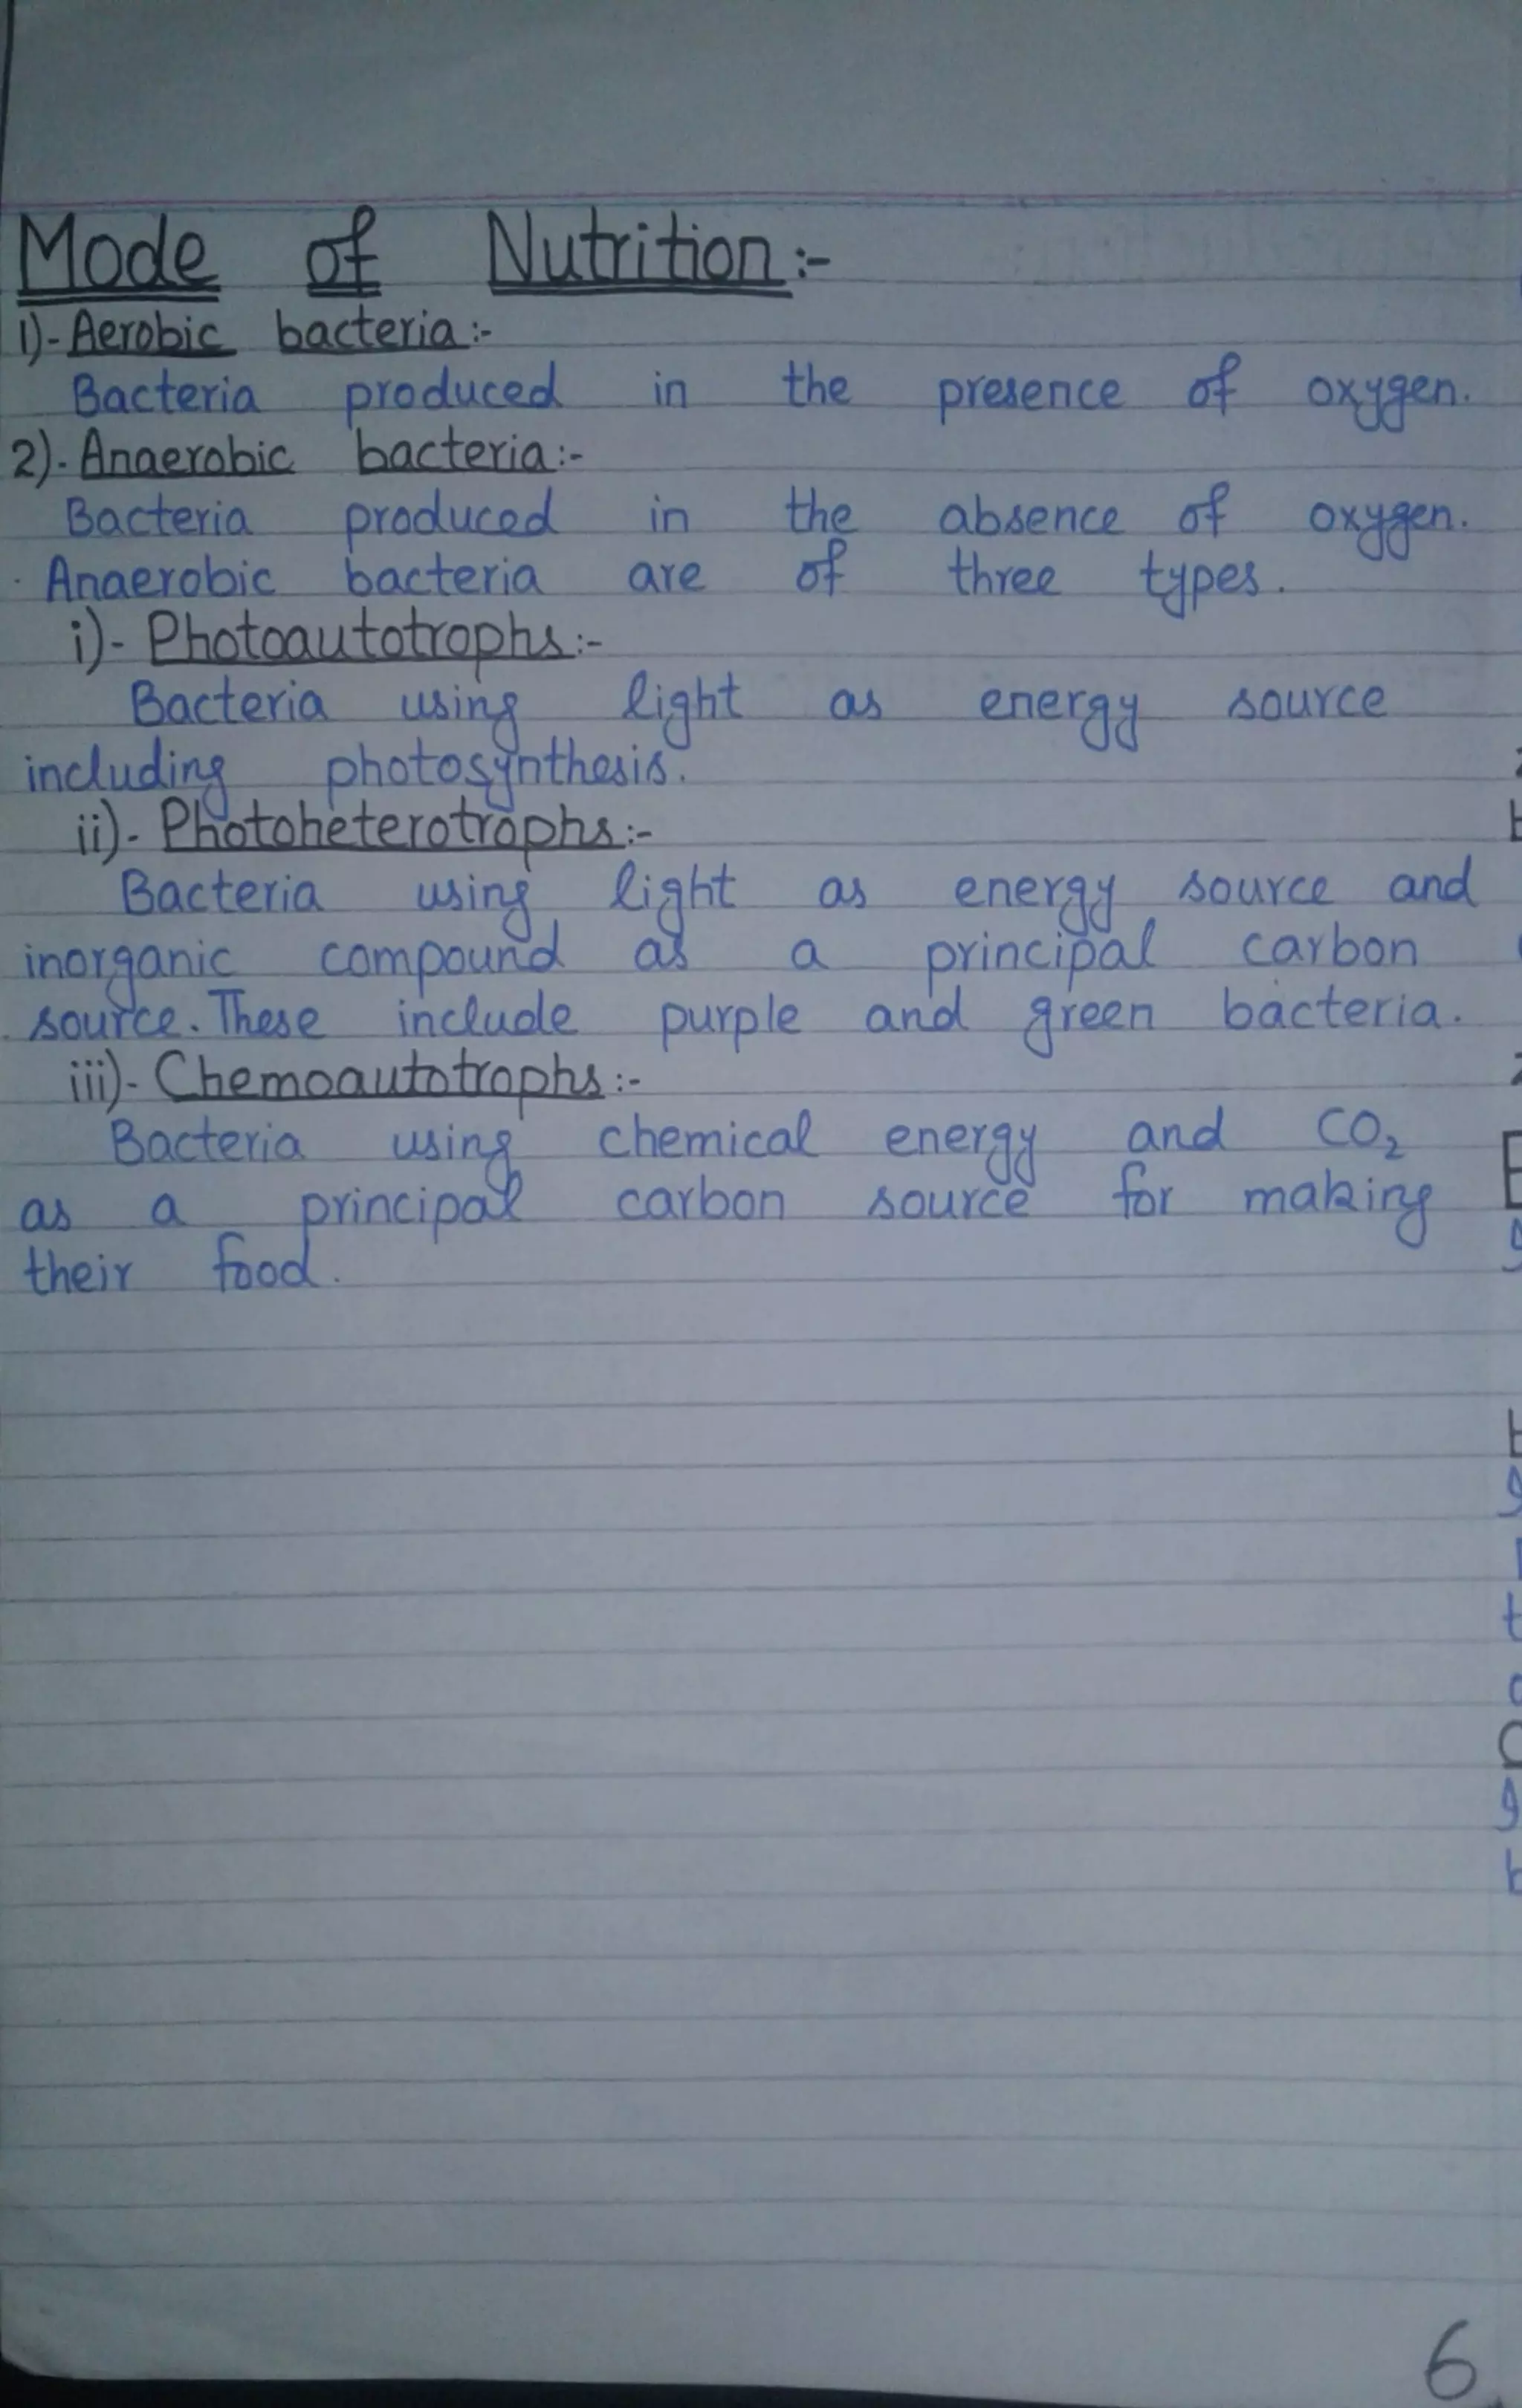 Mode of Nutrition:-
1)- Aerobic bacteria:-
Bacteria produced in the presence of oxygen.
2)- Anaerobic bacteria:-
Bacteria produced in the absence of oxygen.
Anaerobic bacteria are of three types.
i)- Photoautotrophs:-
Bacteria using light as energy source
including photosynthesis.
ii)- Photoheterotrophs:-
Bacteria using light as energy source and
inorganic compound as a principal carbon
source. These include purple and green bacteria.
iii)- Chemoautotrophs:-
Bacteria using chemical energy and CO₂
as a principal carbon source for making
their food.
6